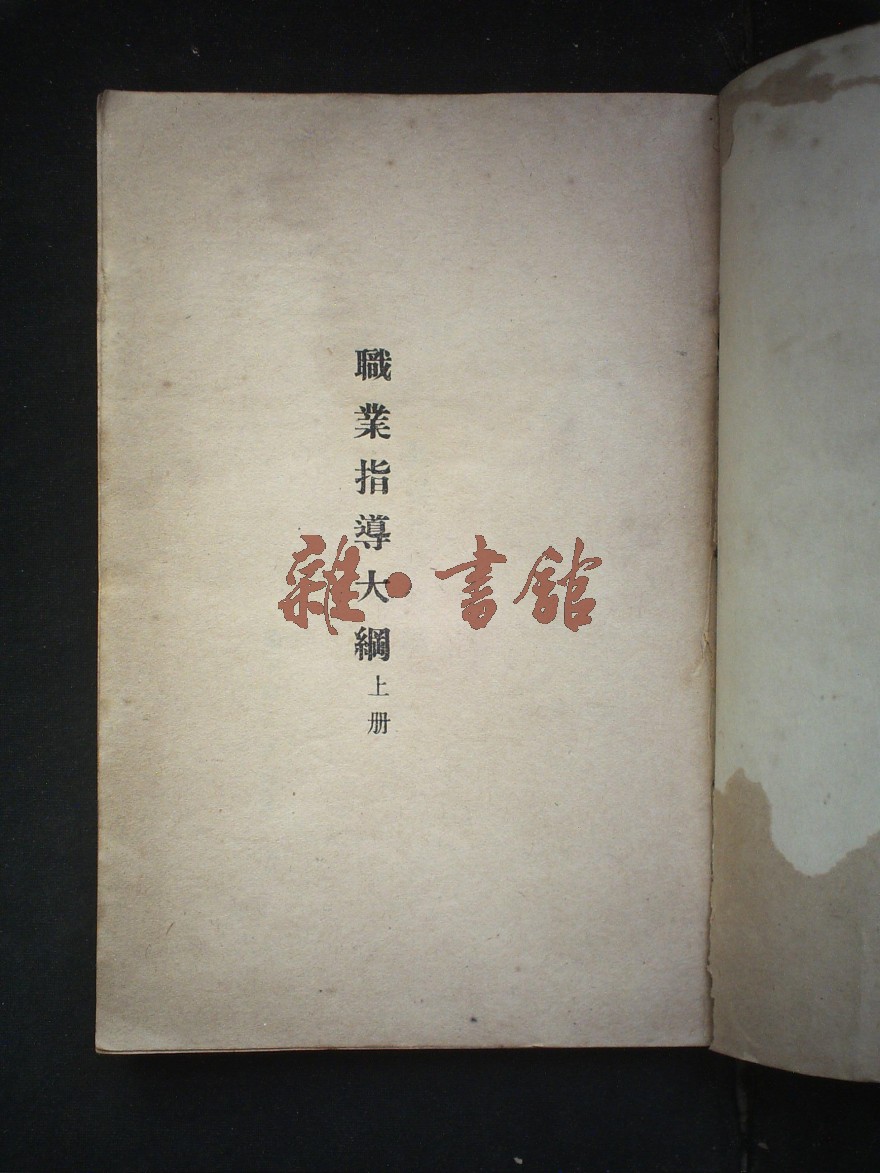 職業指導大綱
上册
雜·書館